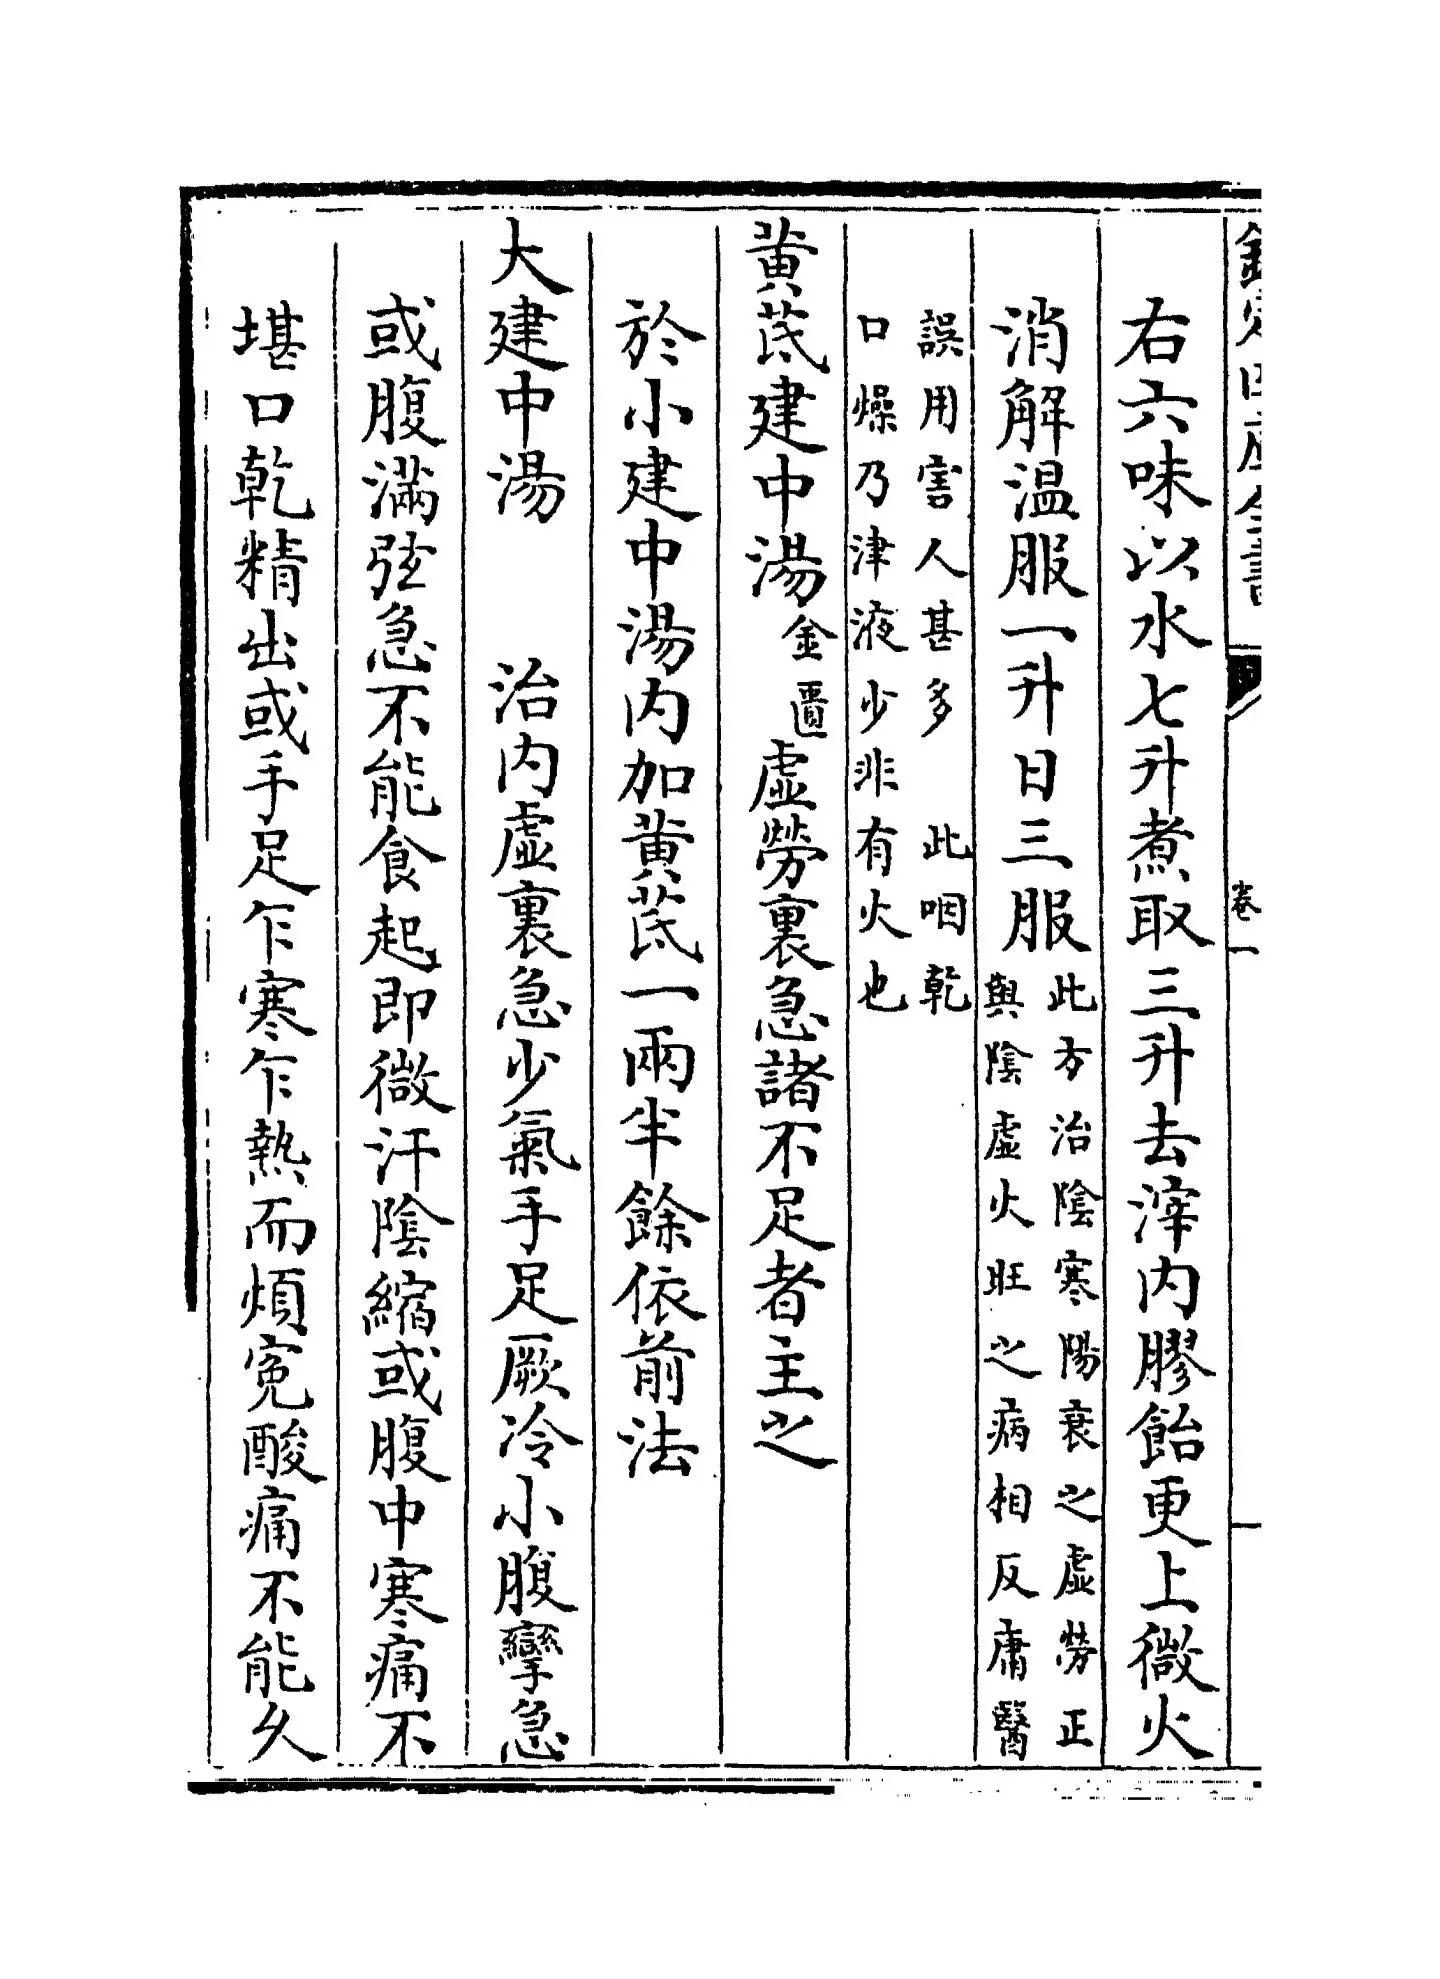 欽定四庫全書
卷一
右六味以水七升煮取三升去滓内膠飴更上微火
消解温服一升日三服
此方治陰寒陽衰之虛勞正
與陰虛火旺之病相反庸醫
誤用害人甚多 此咽乾
口燥乃津液少非有火也
黄芪建中湯金匱虛勞裏急諸不足者主之
於小建中湯内加黄芪一兩半餘依前法
大建中湯 治内虛裏急少氣手足厥冷小腹攣急
或腹滿弦急不能食起即微汗陰縮或腹中寒痛不
堪口乾精出或手足乍寒乍熱而煩寃酸痛不能久